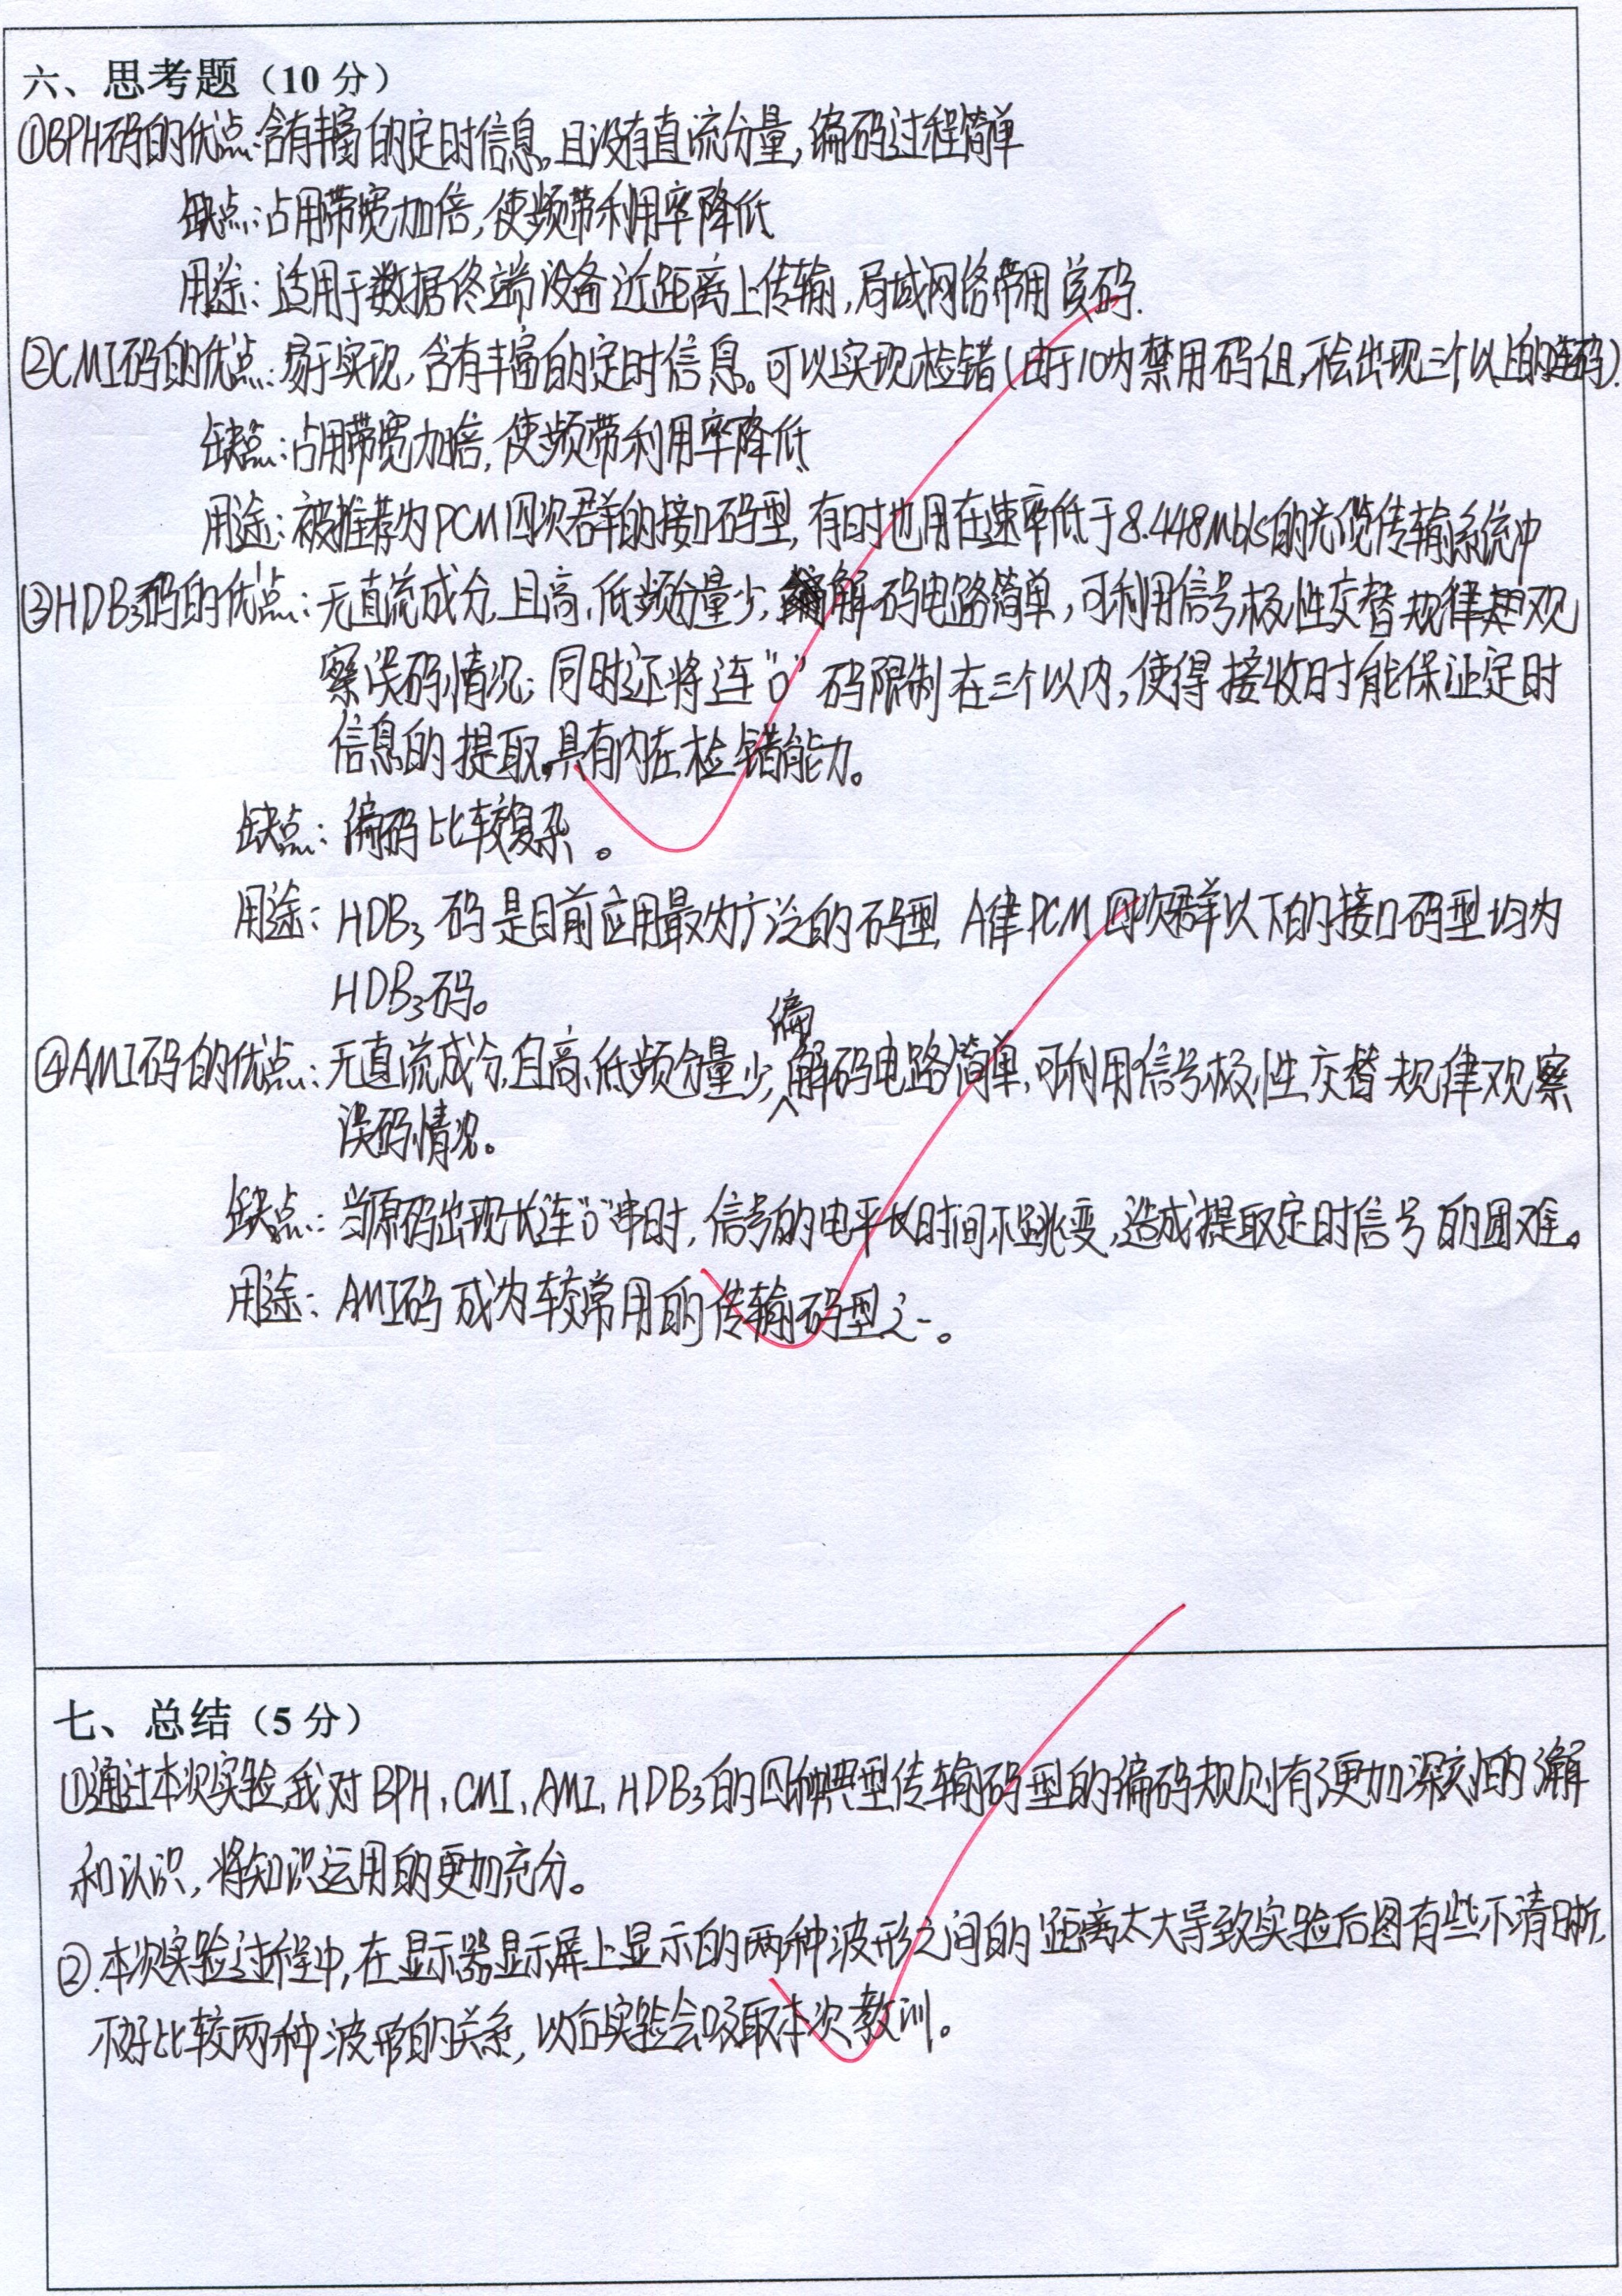 六、思考题（10 分）
①BPH码的优点:含有丰富的定时信息,且没有直流分量,编码过程简单
缺点:占用带宽加倍,使频带利用率降低
用途:适用于数据终端设备近距离上传输,局域网络常用该码.
②CMI码的优点:易于实现,含有丰富的定时信息。可以实现检错(由于10为禁用码组,不会出现三个以上的连码).
缺点:占用带宽加倍,使频带利用率降低
用途:被推荐为PCM四次群的接口码型,有时也用在速率低于8.448Mb/s的光缆传输系统中
③HDB₃码的优点:无直流成分,且高、低频分量少,解码电路简单,可利用信号极性交替规律观
察误码情况;同时还将连“0”码限制在三个以内,使得接收时能保证定时
信息的提取,具有内在检错能力。
缺点:偏码比较复杂。
用途:HDB₃码是目前应用最为广泛的码型,A律PCM四次群以下的接口码型均为
HDB₃码。
④AMI码的优点:无直流成分,且高、低频分量少,偏解码电路简单,可利用信号极性交替规律观察
误码情况。
缺点:当原码出现长连“0”串时,信号的电平长时间不跳变,造成提取定时信号的困难。
用途:AMI码成为较常用的传输码型之一。
七、总结（5 分）
①通过本次实验我对BPH、CMI、AMI、HDB₃的四种典型传输码型的偏码规则有了更加深刻的了解
和认识,将知识运用的更加充分。
②.本次实验过程中,在显示器显示屏上显示的两种波形之间的距离太大导致实验后图有些不清晰,
不好比较两种波形的关系,以后实验会吸取本次教训。